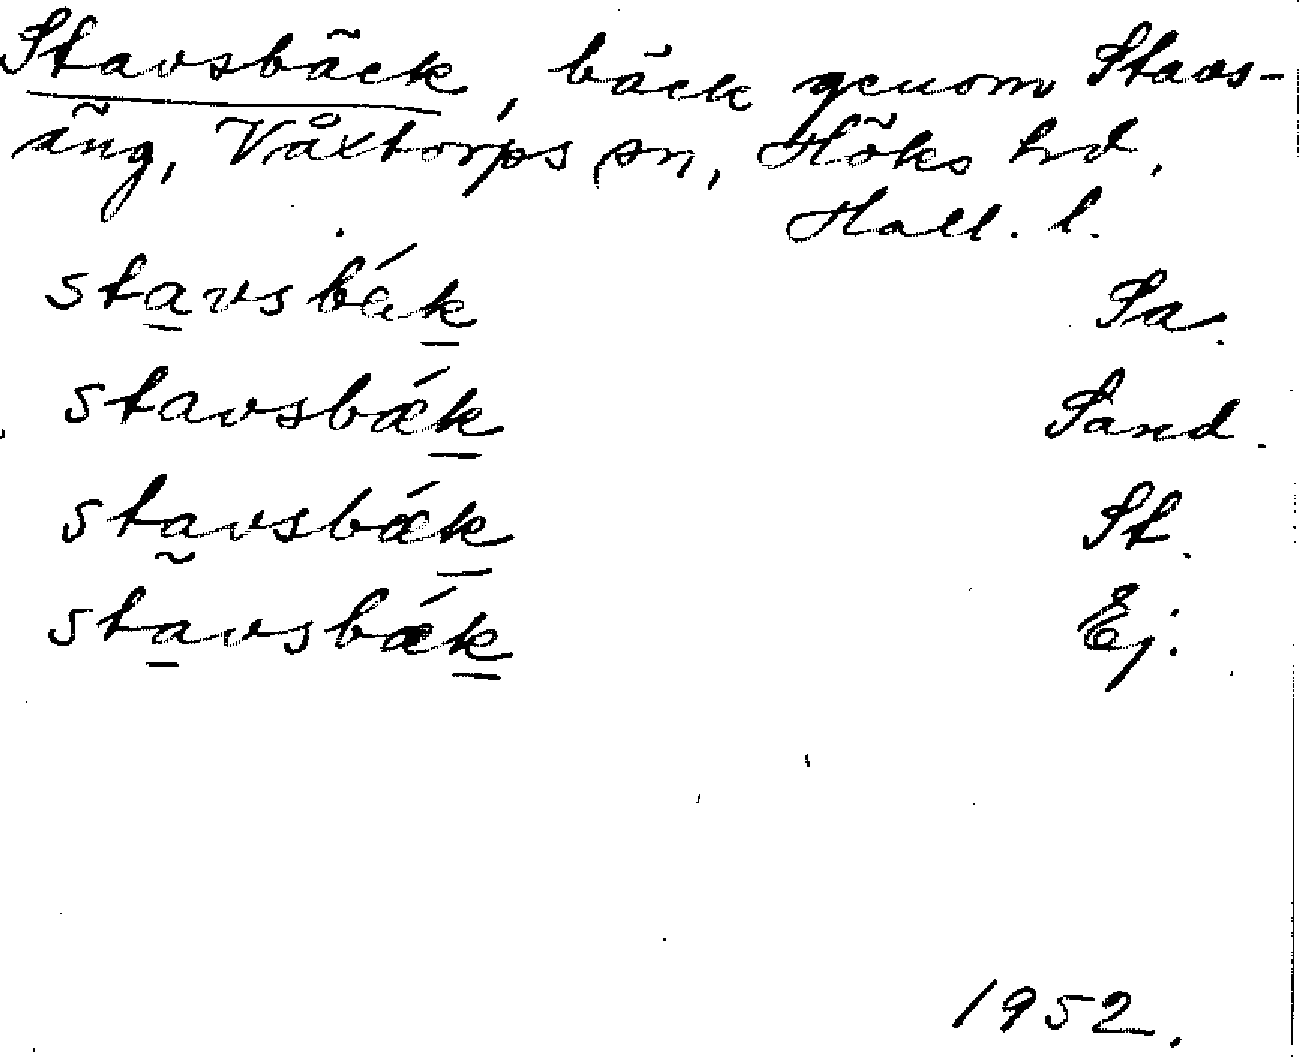 Stavsbäck, bäck genom Stavs-
äng, Våxtorps sn, Höks hd,
Hall. l.
sta̠vsbák̠ Sa.
stavsbǽk̠ Sand.
sta̰vsbǽk̠ St.
sta̠vsbǽk̠ Ej.
1952.